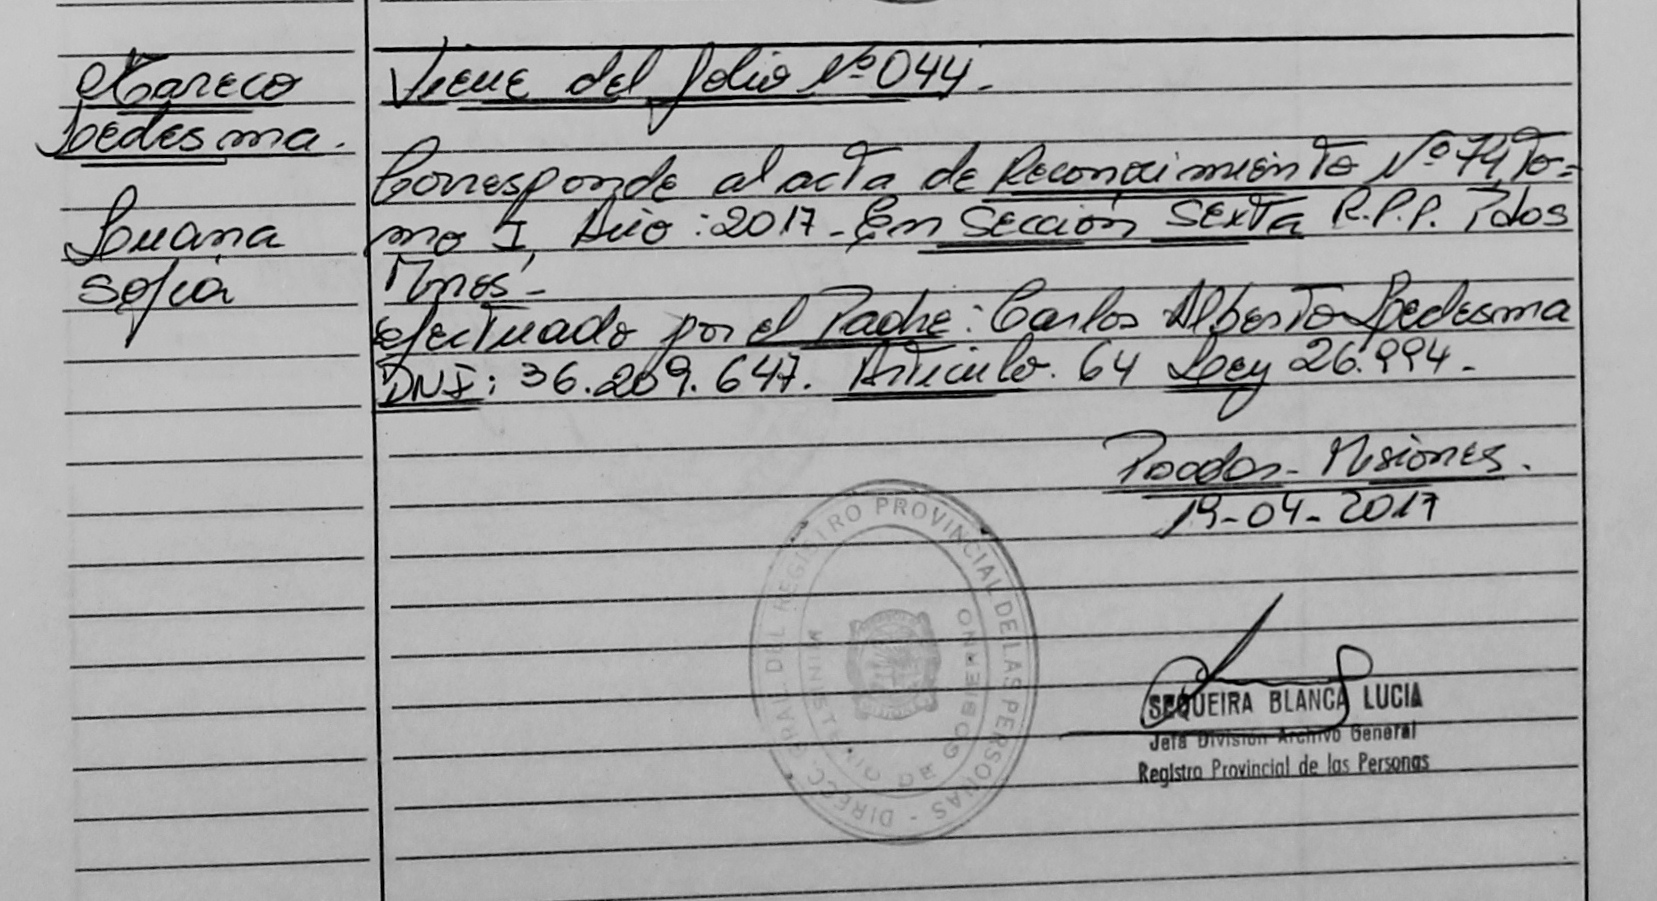 Mareco
Ledesma.
Luana
Sofia
Viene del folio Nº 044.
Corresponde al acta de Reconocimiento Nº 74, To-
mo I, Año: 2017 - En Sección Sexta R.P.P. Pdos
Mnes.-
efectuado por el Padre: Carlos Alberto Ledesma
DNI: 36.209.647. Articulo. 64 Ley 26.994.-
Posadas - Misiones.
19-04-2017
DIRECC. GRAL. DEL REGISTRO PROVINCIAL DE LAS PERSONAS -
MINISTERIO DE GOBIERNO
SEQUEIRA BLANCA LUCIA
Jefa División Archivo General
Registro Provincial de las Personas